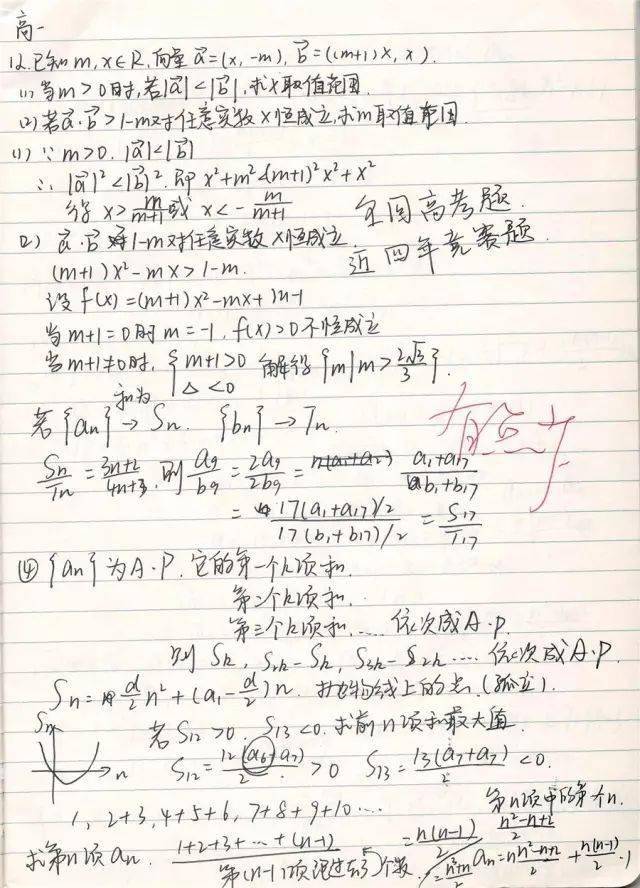 高一
12.已知m,x∈R,向量a⃗=(x,-m),b⃗=((m+1)x,x).
(1)当m>0时,若|a⃗|<|b⃗|,求x取值范围.
(2)若a⃗·b⃗>1-m对任意实数x恒成立,求m取值范围.
(1)∵m>0.|a⃗|<|b⃗|
∴|a⃗|²<|b⃗|².即x²+m²<(m+1)²x²+x²
得x>m/(m+1)或x<-m/(m+1)
全国高考题.
近四年竞赛题.
(2)a⃗·b⃗ 1-m对任意实数x恒成立.
(m+1)x²-mx>1-m.
设f(x)=(m+1)x²-mx+m-1
当m+1=0时m=-1,f(x)>0不恒成立
当m+1≠0时,{m+1>0 △<0 解得{m|m>2√3/3}.
若{an}和为→Sn. {bn}→Tn.
Sn/Tn=(3n+2)/(4n+3).则a9/b9=2a9/2b9= (a1+a17)/(b1+b17)
=(17(a1+a17)/2)/(17(b1+b17)/2)=S17/T17
④{an}为A·P.它的第一个k项和.
第二个k项和.
第三个k项和.…依次成A·P.
则Sk,S2k-Sk,S3k-S2k…依次成A·P.
Sn=d/2n²+(a1-d/2)n.抛物线上的点.(孤立).
Sn
n
若S12>0,S13<0.求前n项和最大值.
S12=12(a6+a7)/2>0 S13=13(a7+a7)/2<0.
1,2+3,4+5+6,7+8+9+10…
第n项中的第个n.
(n²-n+2)/2
求第n项an. 1+2+3+…+(n-1)=n(n-1)/2
第(n-1)项 个数
=(n²+n)/2
an=n(n²-n+2)/2+n(n-1)/2·1